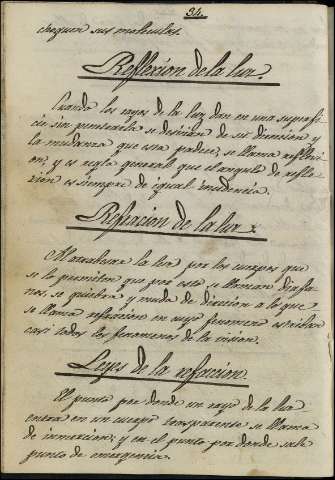 34.
choquen sus moleculas.
Reflexion de la luz.
Cuando los rayos de la luz dan en una superfi-
cie sin penetrarla se desvian de su direccion y
la mudanza que esta padece, se llama reflexi-
on, y es regla general que el angulo de refle-
xion es siempre de igual incidencia.
Refracion de la luz
Al atravesar la luz por los cuerpos que
se lo permiten que por esto se llaman diafa-
nos, se quiebra y muda de direccion a lo que
se llama refracion en cuyo fenomeno estriban
casi todos los fenomenos de la vision.
Leyes de la refracion.
El punto por donde un rayo de la luz
entra en un cuerpo trasparente se llama
de inmersion; y en el punto por donde sale
punto de emergencia.